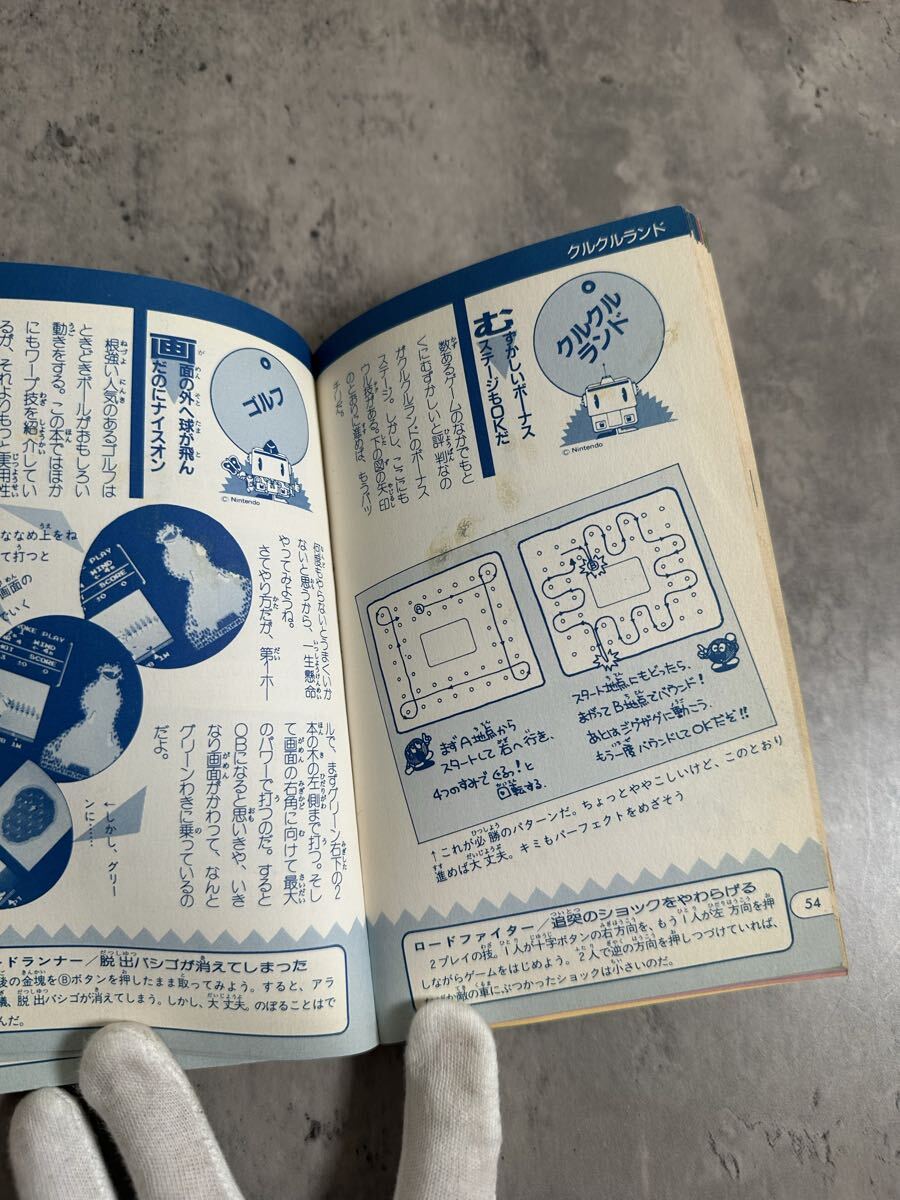 クルクルランド
クルクル
ランド
© Nintendo
むずかしいボーナス
ステージもOKだ
数あるゲームのなかでもと
くにむずかしいと評判なの
がクルクルランドのボーナス
ステージ。しかし、ここにも
ウル技がある。下の図の矢印
のとおりに進めば、もうバッ
チリだ。
まずA地点から
スタートして右へ行き、
4つのすみでくるっと
回転する。
スタート地点にもどったら、
あがってB地点でバウンド!
あとはジグザグに動こう。
もう一度バウンドしてOKだぞ!!
↑これが必勝のパターンだ。ちょっとややこしいけど、このとおり
進めば大丈夫。キミもパーフェクトをめざそう
54
ロードファイター/追突のショックをやわらげる
2プレイの技。1人が十字ボタンの右方向を、もう1人が左方向を押
しながらゲームをはじめよう。2人で逆の方向を押しつづけていれば、
敵の車にぶつかったショックは小さいのだ。
ゴルフ
© Nintendo
画面の外へ球が飛ん
だのにナイスオン
根強い人気のあるゴルフは
ときどきボールがおもしろい
動きをする。この本ではほか
にもワープ技を紹介してい
るが、それよりもっと実用性
何度もやらないとうまくいか
ないと思うから、一生懸命
やってみようね。
さてやり方だが、第一ホー
ルで、まずグリーン右下の2
本の木の左側まで打つ。そし
て画面の右角に向けて最大
のパワーで打つのだ。すると
OBになると思いきや、いき
なり画面がかわって、なんと
グリーンわきに乗っているの
だよ。
ななめ上をね
て打つと
画面の
でいく
PLAY
WIND
SCORE
OKE PLAY
WIND
SCORE
←しかし、グリー
ンに……
ードランナー/脱出バシゴが消えてしまった
後の金塊をⒷボタンを押したまま取ってみよう。すると、アラ
議、脱出バシゴが消えてしまう。しかし、大丈夫。のぼることはで
んだ。